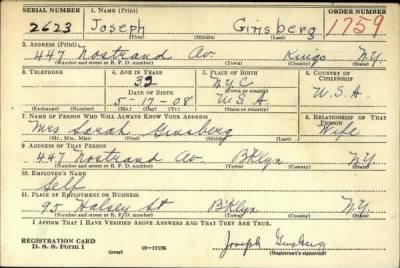 SERIAL NUMBER 1. NAME (Print) ORDER NUMBER
2623 Joseph Ginsberg 1759
(First) (Middle) (Last)
2. ADDRESS (Print)
447 Nostrand Av. Kings N.Y.
(Number and street or R. F. D. number) (Town) (County) (State)
3. TELEPHONE 4. AGE IN YEARS 5. PLACE OF BIRTH 6. COUNTRY OF CITIZENSHIP
32 N.Y.C
DATE OF BIRTH (Town or county)
5-17-08 U.S.A. U.S.A.
(Exchange) (Number) (Mo.) (Day) (Yr.) (State or country)
7. NAME OF PERSON WHO WILL ALWAYS KNOW YOUR ADDRESS 8. RELATIONSHIP OF THAT PERSON
Mrs Sarah Ginsberg Wife
(Mr., Mrs., Miss) (First) (Middle) (Last)
9. ADDRESS OF THAT PERSON
447 Nostrand Av B'klyn N.Y.
(Number and street or R. F. D. number) (Town) (County) (State)
10. EMPLOYER'S NAME
Self
11. PLACE OF EMPLOYMENT OR BUSINESS
95 Halsey St B'klyn N.Y.
(Number and street or R. F. D. number) (Town) (County) (State)
I AFFIRM THAT I HAVE VERIFIED ABOVE ANSWERS AND THAT THEY ARE TRUE.
REGISTRATION CARD
D. S. S. Form 1 16-17105 Joseph Ginsberg
(Registrant's signature)